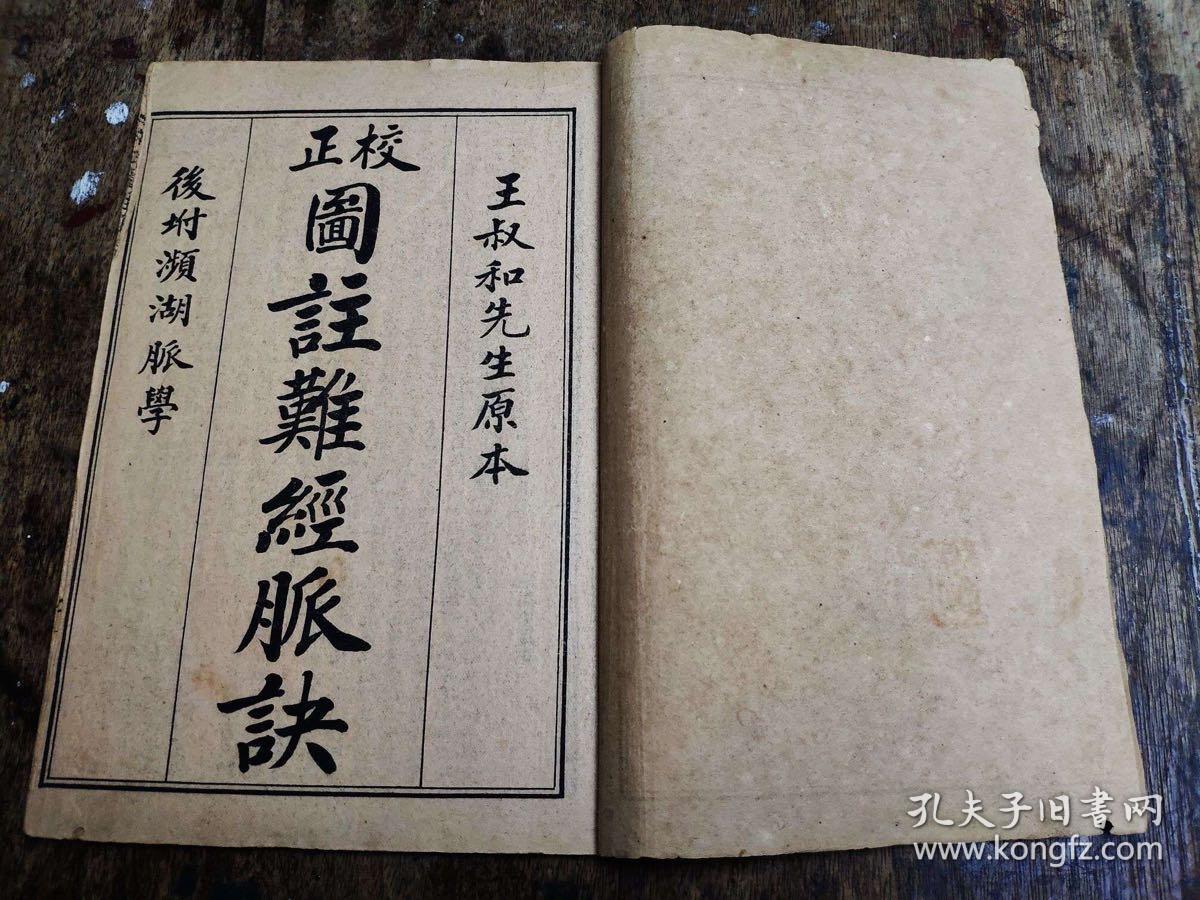 王叔和先生原本
校正
圖註難經脈訣
後坿瀕湖脈學
孔夫子旧書网
www.kongfz.com